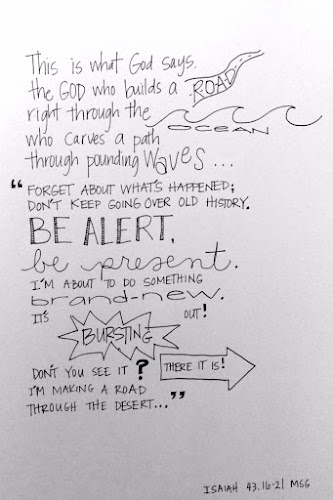 This is what God says.
the GOD who builds a ROAD
right through the
OCEAN
who carves a path
through pounding waves...
"FORGET ABOUT WHAT'S HAPPENED;
DON'T KEEP GOING OVER OLD HISTORY.
BE ALERT,
be present.
I'M ABOUT TO DO SOMETHING
brand-new.
IT'S BURSTING OUT!
DON'T YOU SEE IT? THERE IT IS!
I'M MAKING A ROAD
THROUGH THE DESERT..."
ISAIAH 43.16-21 MSG